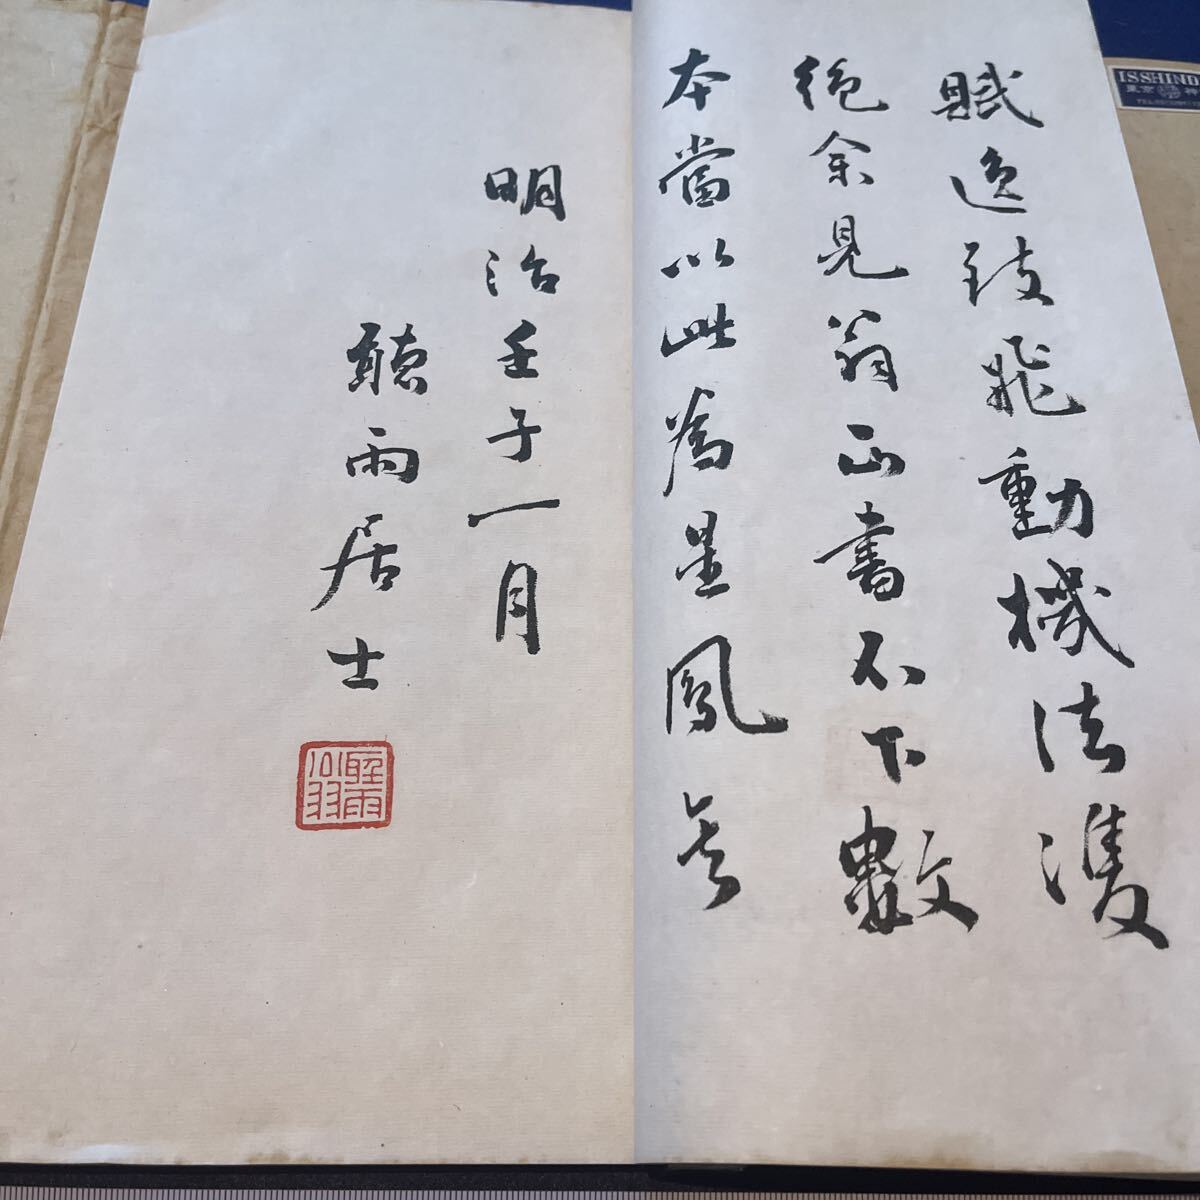 賦逸致飛動機法濩
絶余見翁正書不下數
本當以此為星鳳矣
明治壬子一月
聴雨居士
聴雨
ISSHIND
東京 神